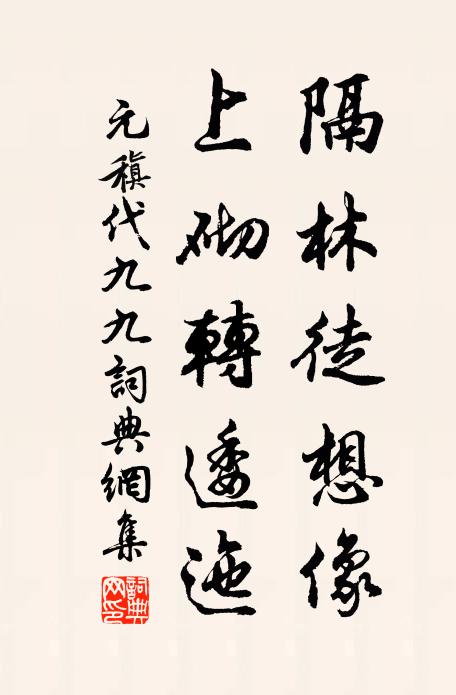 隔林徒想像
上砌轉逶迤
元稹代九九詞典網集
詞典网印